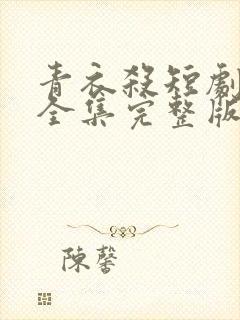 青衣殺短劇
全集完整版
陳馨